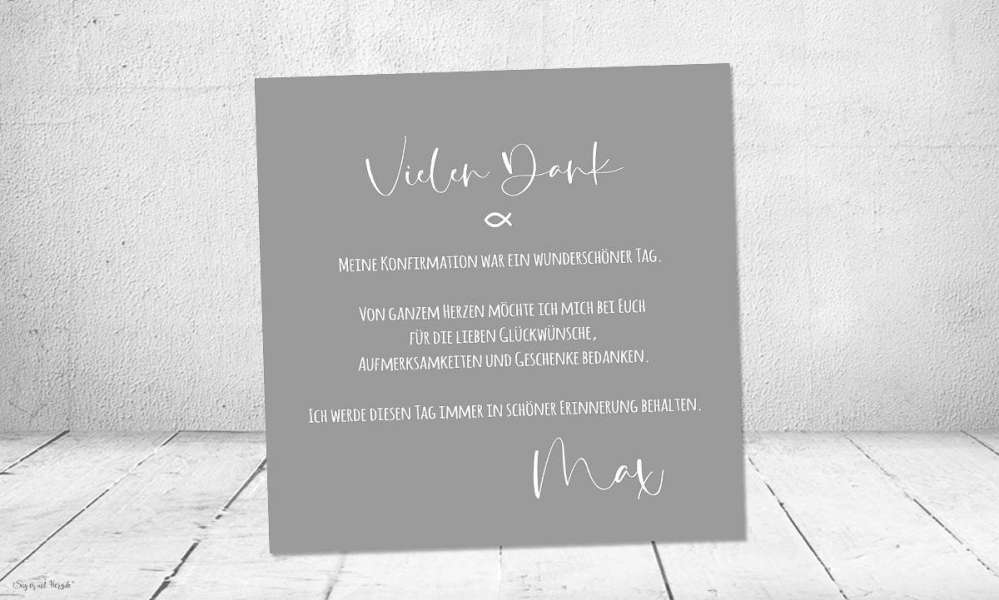 Vielen Dank
Meine Konfirmation war ein wunderschöner Tag.
Von ganzem Herzen möchte ich mich bei Euch
für die lieben Glückwünsche,
Aufmerksamkeiten und Geschenke bedanken.
Ich werde diesen Tag immer in schöner Erinnerung behalten.
Max
"Sag es mit Herzah"